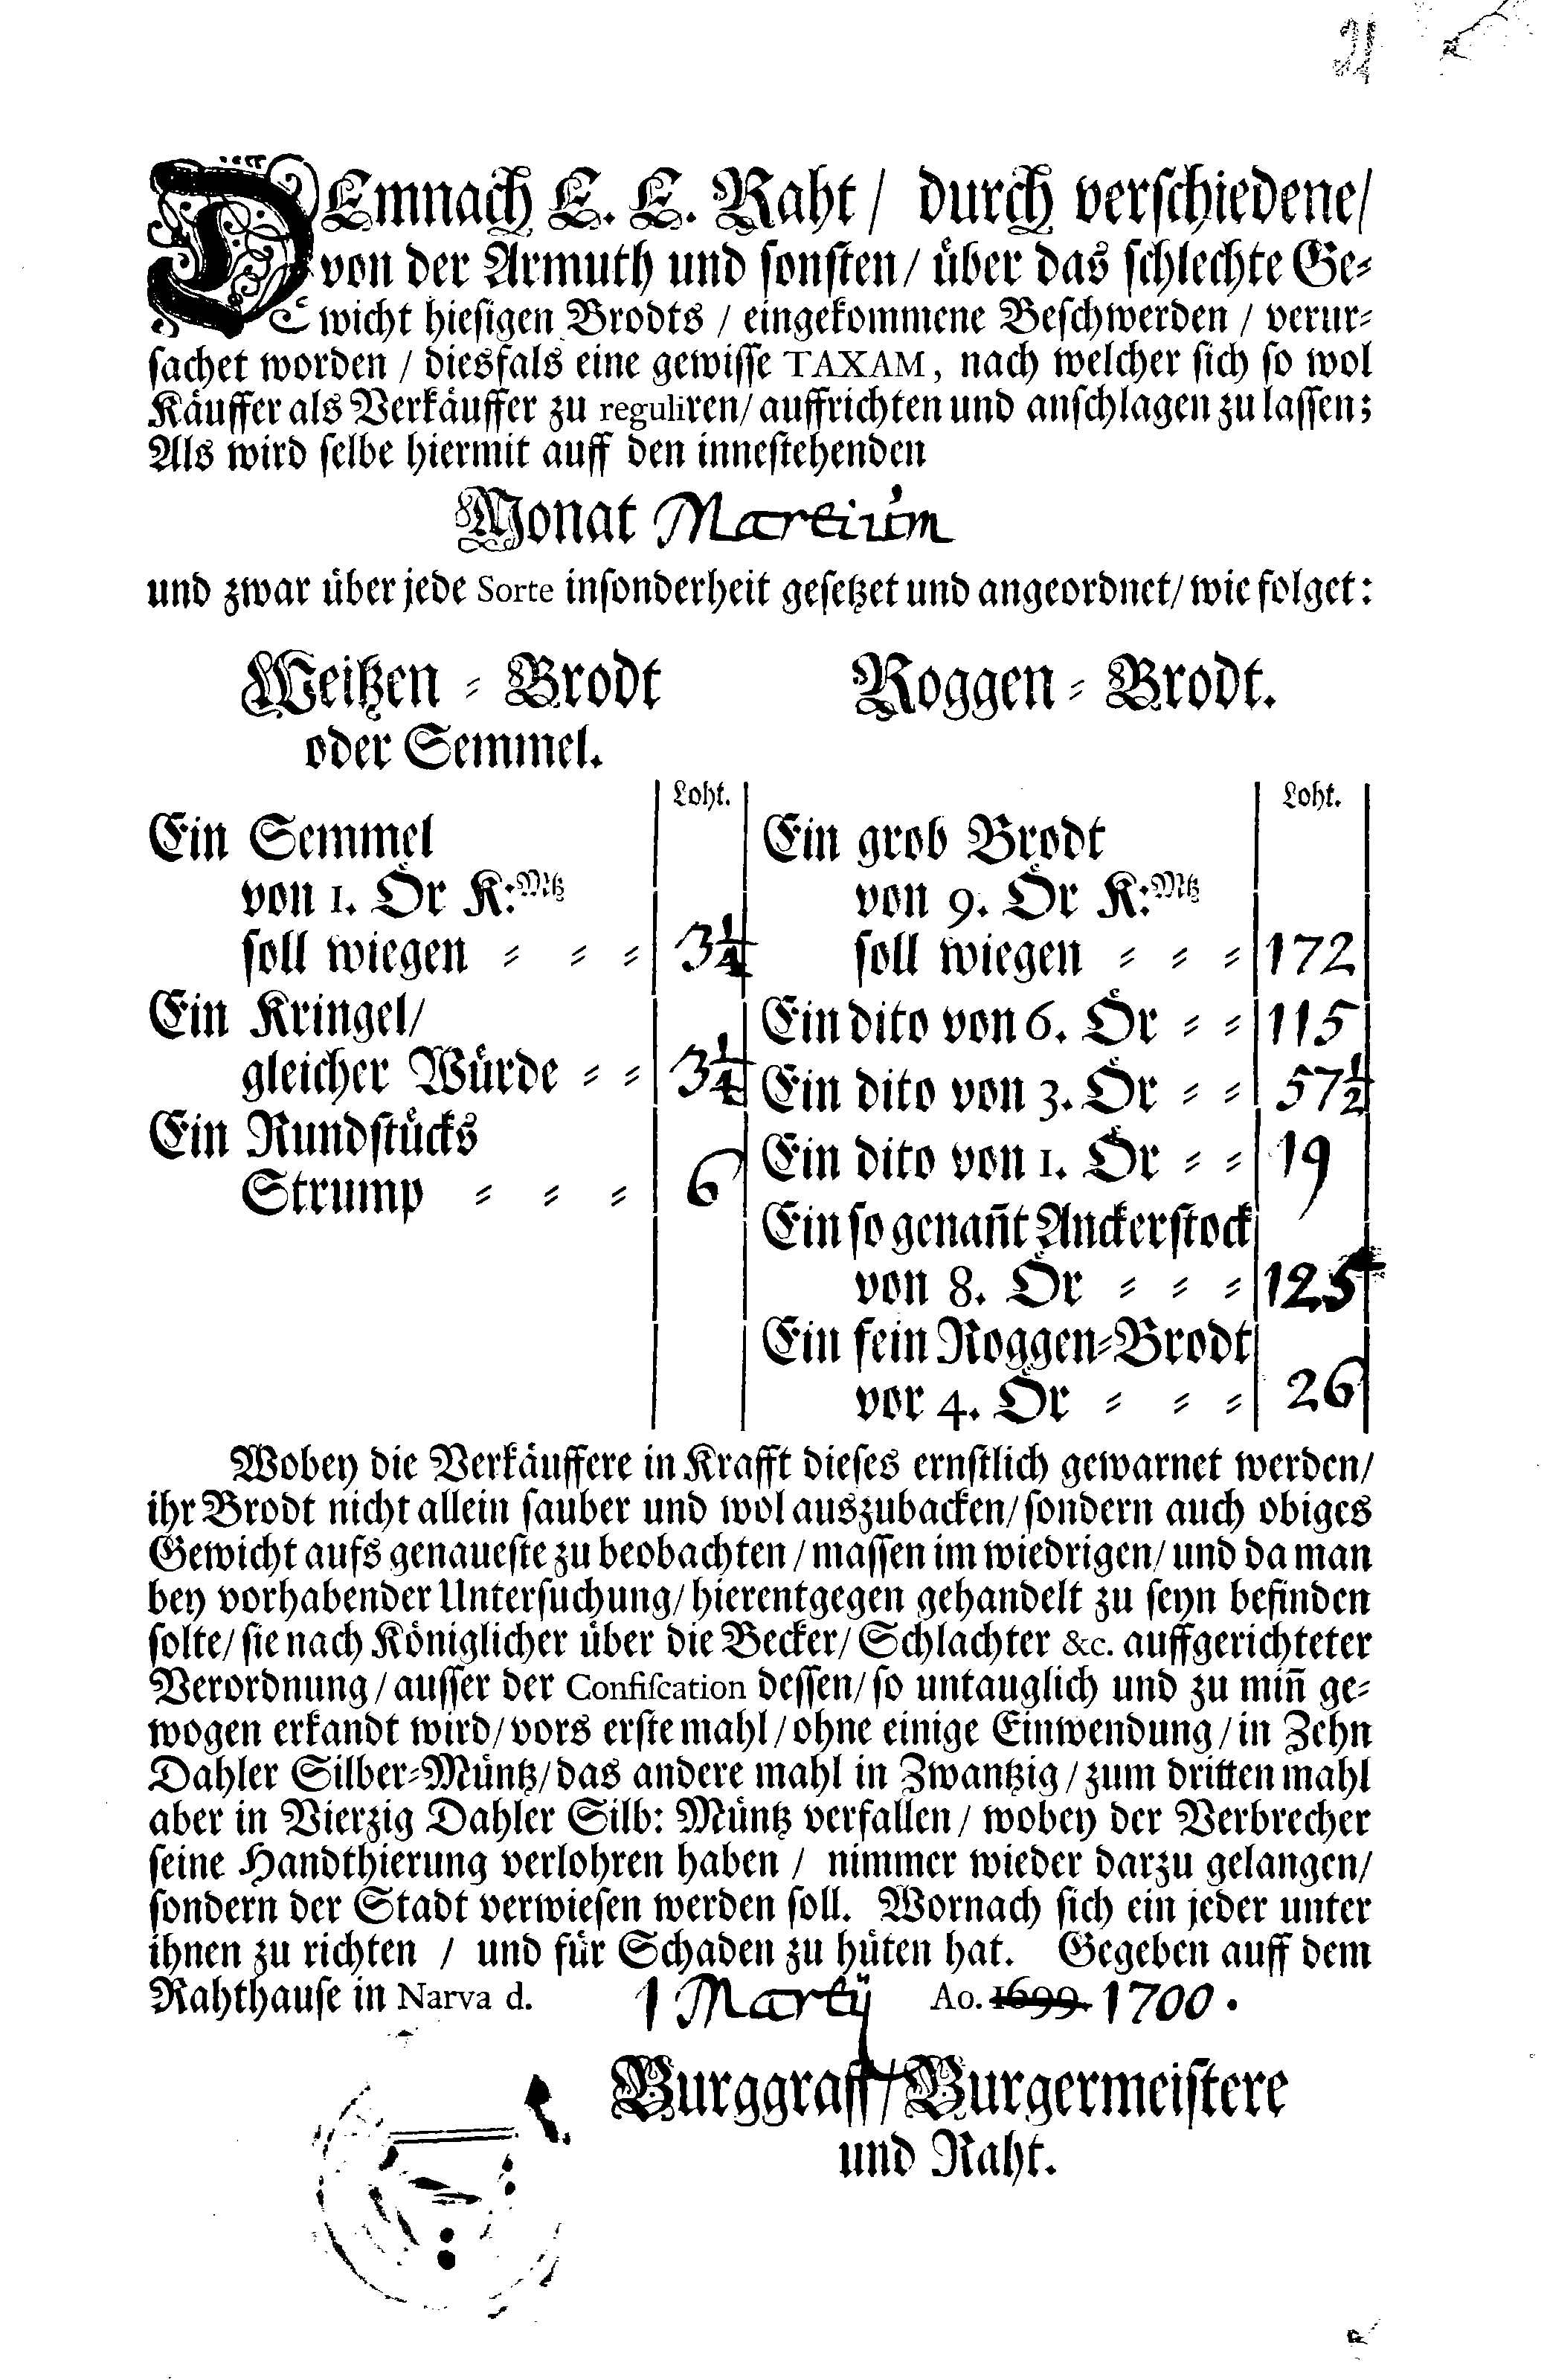 DEmnach E. E. Raht / durch verschiedene /
von der Armuth und sonsten / über das schlechte Ge-
wicht hiesigen Brodts / eingekommene Beschwerden / verur-
sachet worden / diesfals eine gewisse TAXAM, nach welcher sich so wol
Käuffer als Verkäuffer zu reguliren / auffrichten und anschlagen zu lassen;
Als wird selbe hiermit auff den innestehenden
Monat Martium
und zwar über jede Sorte insonderheit gesetzet und angeordnet / wie folget:
Weitzen - Brodt
oder Semmel.
Loht.
Ein Semmel
von 1. Ör K: Mtz
soll wiegen - - - 3 1/4
Ein Kringel /
gleicher Würde - - 3 1/4
Ein Rundstücks
Strump - - - 6
Roggen - Brodt.
Loht.
Ein grob Brodt
von 9. Ör K: Mtz
soll wiegen - - - 172
Ein dito von 6. Ör - - 115
Ein dito von 3. Ör - - 57 1/2
Ein dito von 1. Ör - - 19
Ein so genañt Anckerstock
von 8. Ör - - - 125
Ein fein Roggen-Brodt
vor 4. Ör - - - 26
Wobey die Verkäuffere in Krafft dieses ernstlich gewarnet werden /
ihr Brodt nicht allein sauber und wol auszubacken / sondern auch obiges
Gewicht aufs genaueste zu beobachten / massen im wiedrigen / und da man
bey vorhabender Untersuchung / hierentgegen gehandelt zu seyn befinden
solte / sie nach Königlicher über die Becker / Schlachter &c. auffgerichteter
Verordnung / ausser der Confiscation dessen / so untauglich und zu miñ ge-
wogen erkandt wird / vors erste mahl / ohne einige Einwendung / in Zehn
Dahler Silber-Müntz / das andere mahl in Zwantzig / zum dritten mahl
aber in Vierzig Dahler Silb: Müntz verfallen / wobey der Verbrecher
seine Handthierung verlohren haben / nimmer wieder darzu gelangen /
sondern der Stadt verwiesen werden soll. Wornach sich ein jeder unter
ihnen zu richten / und für Schaden zu hüten hat. Gegeben auff dem
Rahthause in Narva d. 1 Martij Ao. 1699. 1700.
Burggraff / Burgermeistere
und Raht.